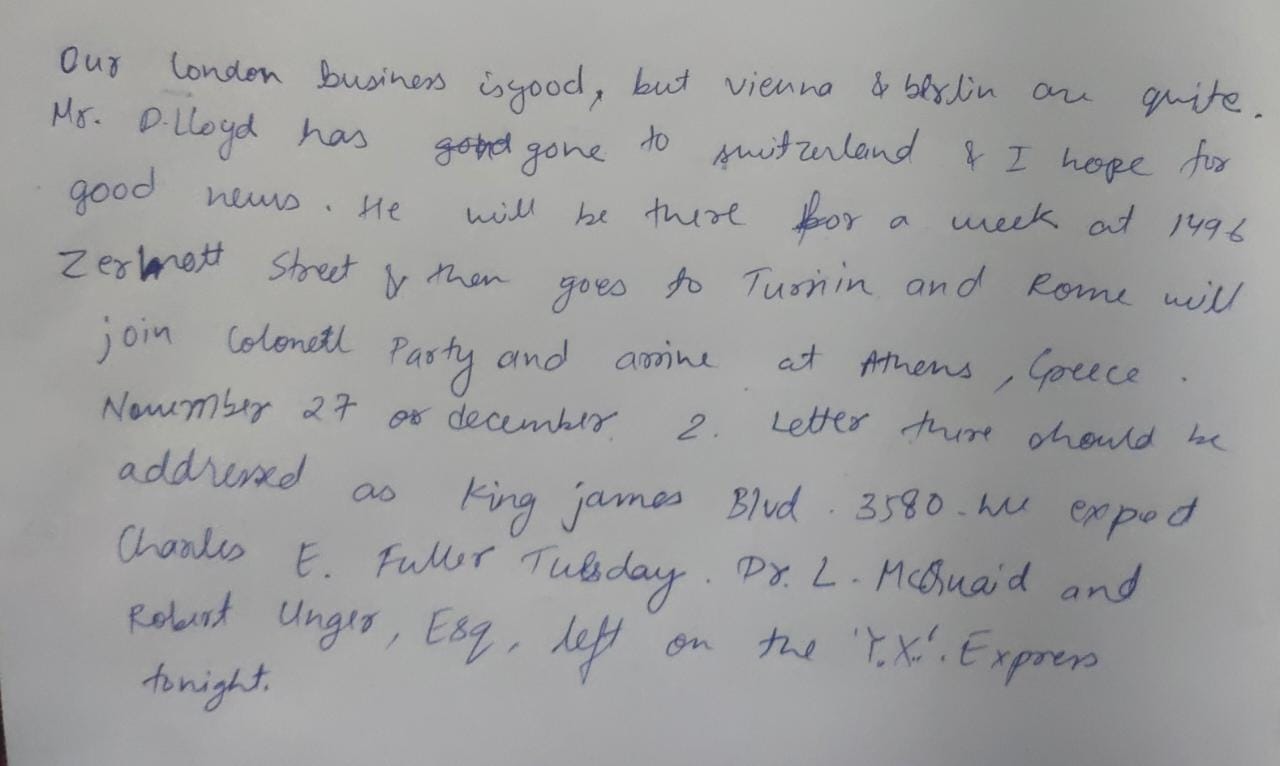 Our London business is good, but vienna & berlin are quite.
Mr. D. Lloyd has gone to switzerland & I hope for
good news. He will be there for a week at 1496
Zermott Street & then goes to Turnin and Rome will
join Colonell Party and arrive at Athens, Greece.
November 27 or december 2. Letter there should be
addressed as King james Blvd. 3580. We expect
Charles E. Fuller Tuesday. Dr. L. McQuaid and
Robert Unger, Esq, left on the 'Y.X.'. Express
tonight.